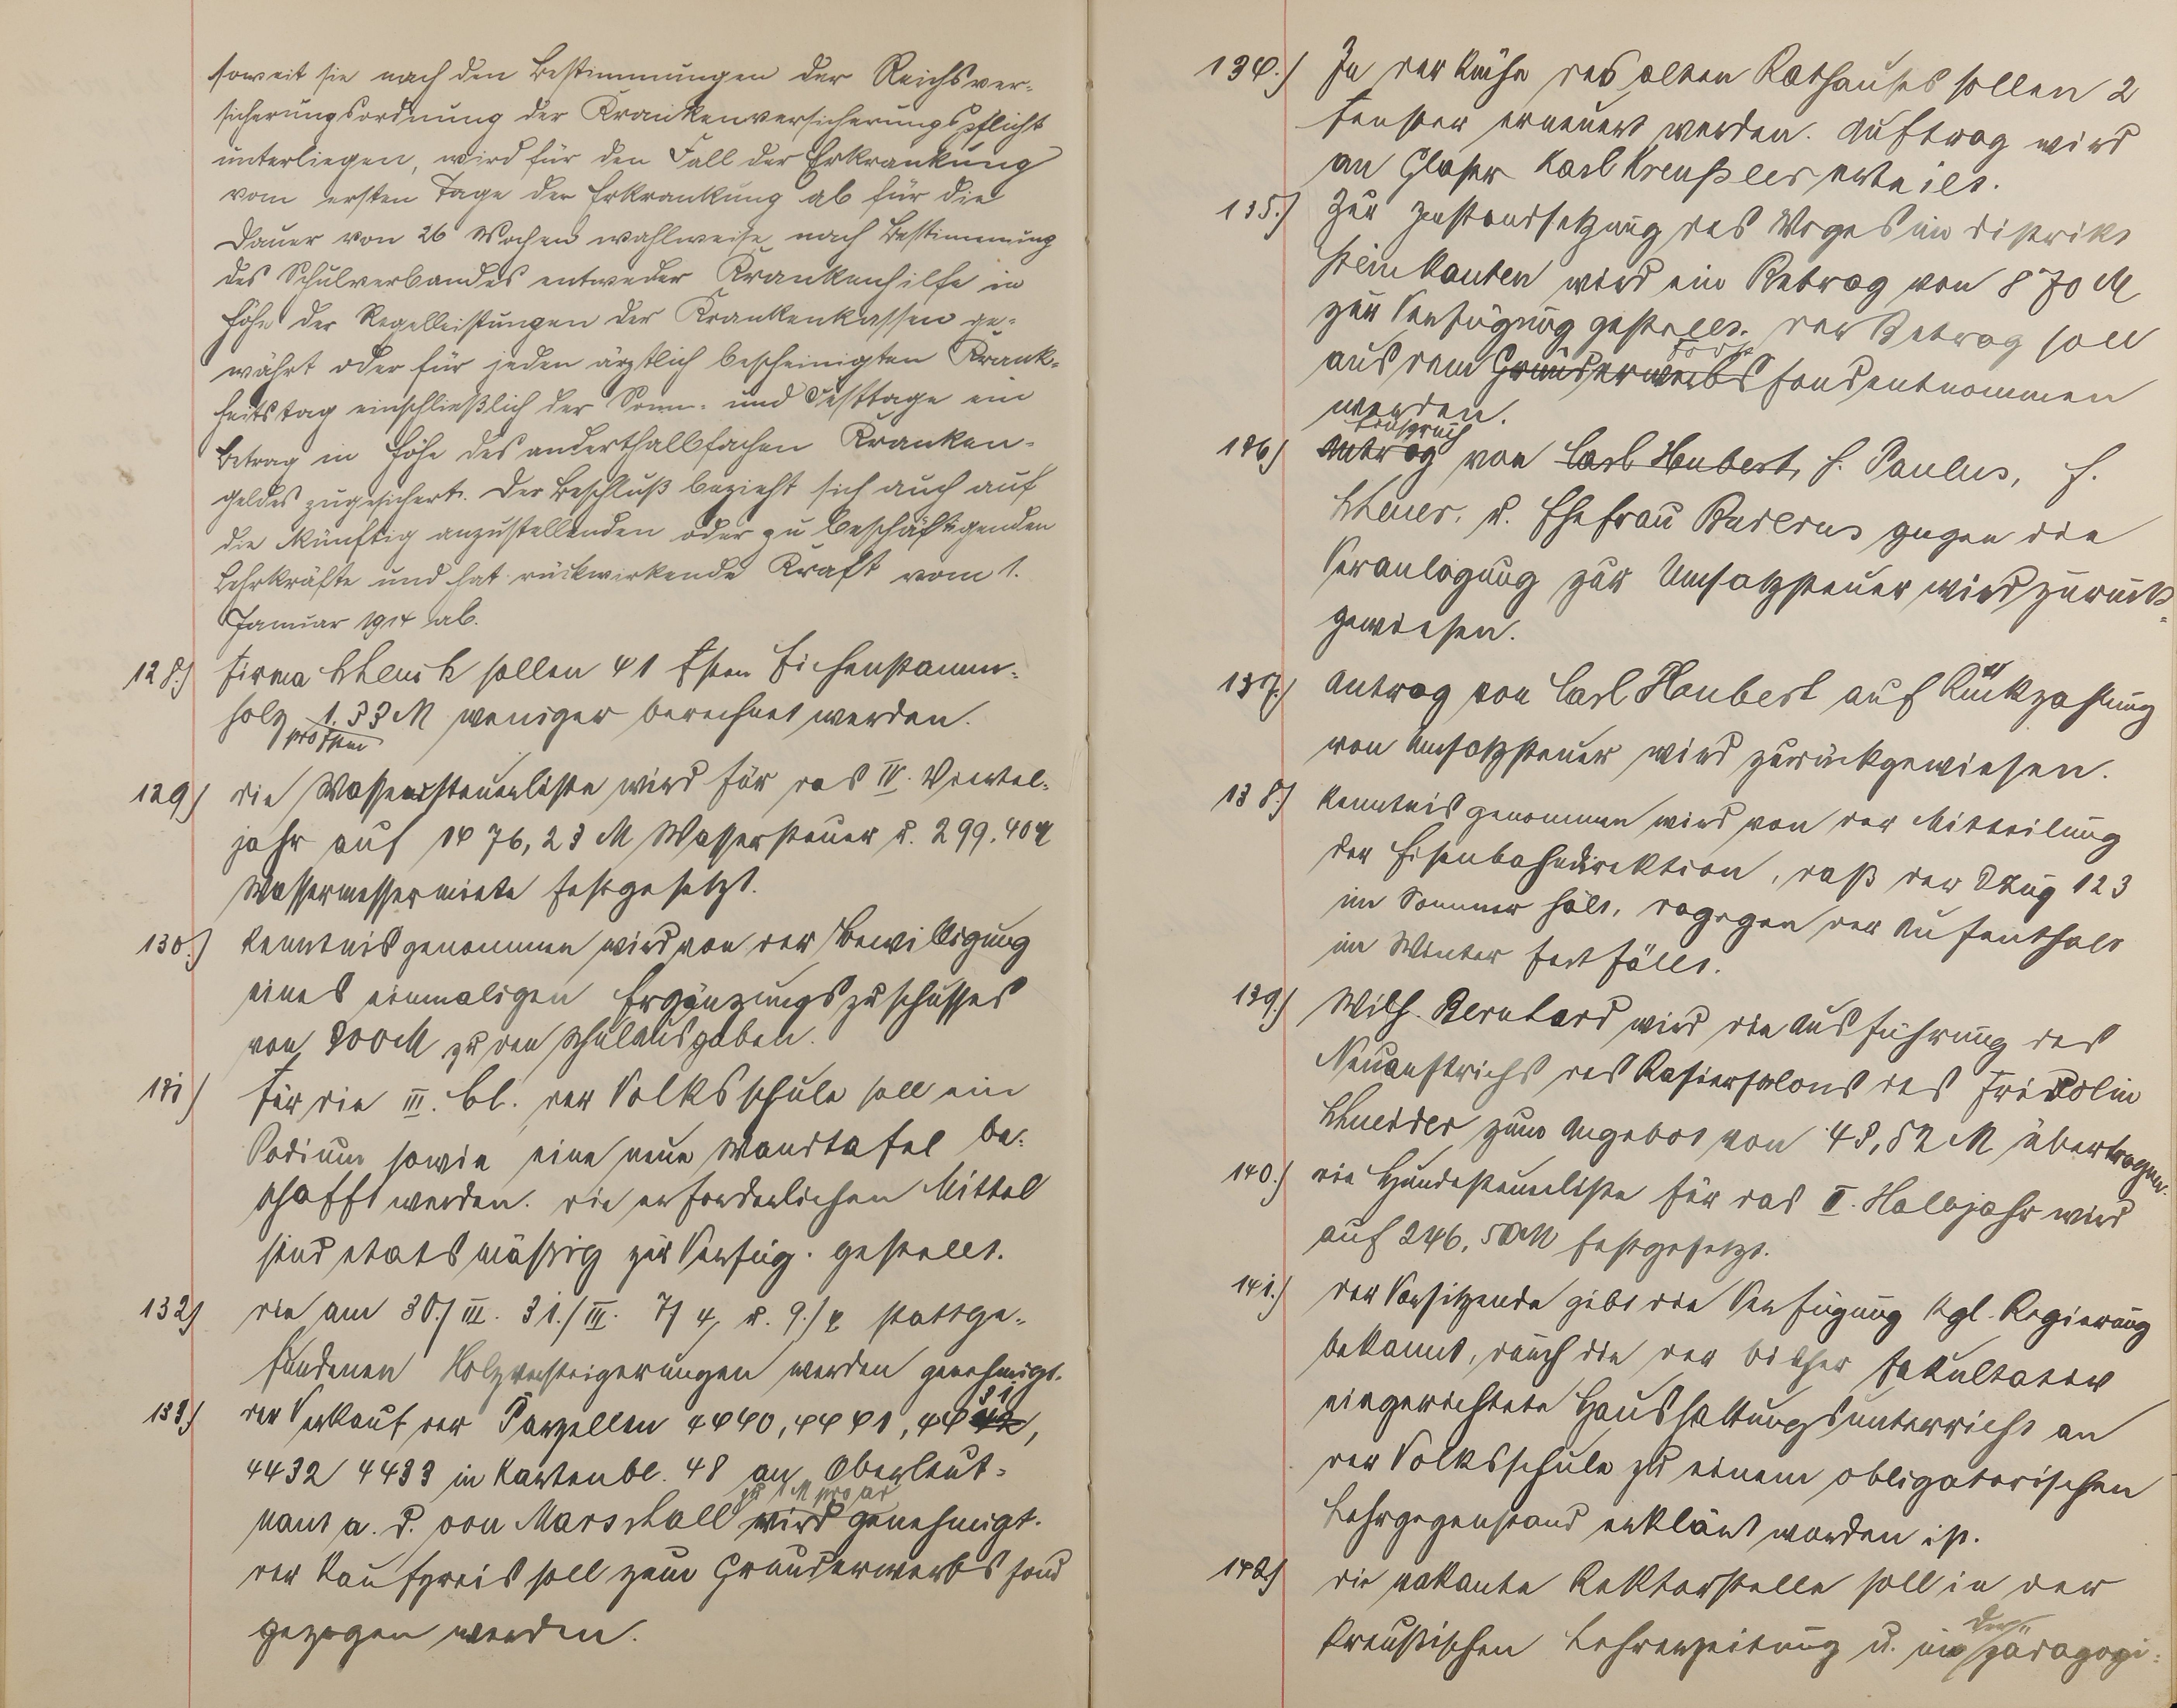 soweit sie nach den Bestimmungen der Reichsver-
sicherungsordnung der Krankenversicherungspflicht
unterliegen, wird für den Fall der Erkrankung
vom ersten Tage der Erkrankung ab für die
Dauer von 26 Wochen wahlweise nach Bestimmung
des Schulverbandes entweder Krankenhilfe in
Höhe der Regelleistungen der Krankenkassen ge-
währt oder für jeden ärztlich bescheinigten Krank-
heitstag einschließlich der Sonn- und Festtage ein
Betrag in Höhe des anderthalbfachen Kranken-
geldes zugesichert. Der Beschluß bezieht sich auch auf
die künftig anzustellenden oder zu beschäftigenden
Lehrkräfte und hat rückwirkende Kraft vom 1.
Januar 1914 ab.
128.) Firma Schenck sollen 41 Fstm Eichenstamm-
holz 1.33 M weniger berechnet werden.
pro Fstm
129) Die Wassersteuerliste wird für das IV. Viertel-
jahr auf 1476,23 M Wassersteuer u. 299.40 M
Wassermessermiete festgesetzt.
130.) Kenntnis genommen wird von der Bewilligung
eines einmaligen Ergänzungszuschusses
von 800 M zu den Schulausgaben.
131) Für die III. Cl. der Volksschule soll ein
Podium sowie eine neue Wandtafel be-
schafft werden. Die erforderlichen Mittel
sind etatsmäßig zur Verfüg. gestellt.
132) Die am 30./III. 31./III. 7/4, u. 9./4 stattge-
fundenen Holzversteigerungen werden genehmigt.
133.) Der Verkauf der Parzellen 4440, 4441, 4431,
4432 4433 in Kartenbl. 48 an Oberleut-
zu 1 M pro ar
nant a. D. von Marschall wird genehmigt.
Der Kaufpreis soll zum Grunderwerbsfond
gezogen werden.
134.) In der Küche des alten Rathauses sollen 2
Fenster erneuert werden. Auftrag wird
an Glaser Karl Kreußler erteilt.
135.) Zur Instandsetzung des Weges im Distrikt
Steinkauten wird ein Betrag von 870 M
zur Verfügung gestellt. Der Betrag soll
aus dem Grunderwerbsfond entnommen
werden.
Einspruch
136) Antrag von Carl Haubert, H. Paulus, H.
Scheuer. u. Ehefrau Buderus gegen die
Veranlagung zur Umsatzsteuer wird zurück-
gewiesen.
137.) Antrag von Carl Haubert auf Rückzahlung
von Umsatzsteuer wird zurückgewiesen.
138.) Kenntnis genommen wird von der Mitteilung
der Eisenbahndirektion, daß der D Zug 123
im Sommer hält, dagegen der Aufenthalt
im Winter fortfällt.
139.) Wilh. Bernhard wird die Ausführung des
Neuanstrichs des Rasiersalons des Fridolin
Schneider zum Angebot von 48,82 M übertragen.
140.) Die Hundesteuerliste für das II. Halbjahr wird
auf 246,50 M festgesetzt.
141.) Der Vorsitzende gibt die Verfügung Kgl. Regierung
bekannt, durch die der bisher fakultativ
eingerichtete Haushaltungsunterricht an
der Volksschule zu einem obligatorischen
Lehrgegenstand erklärt worden ist.
142) Die vakante Rektorstelle soll in der
der
Preußischen Lehrerzeitung u. in pädagogi-